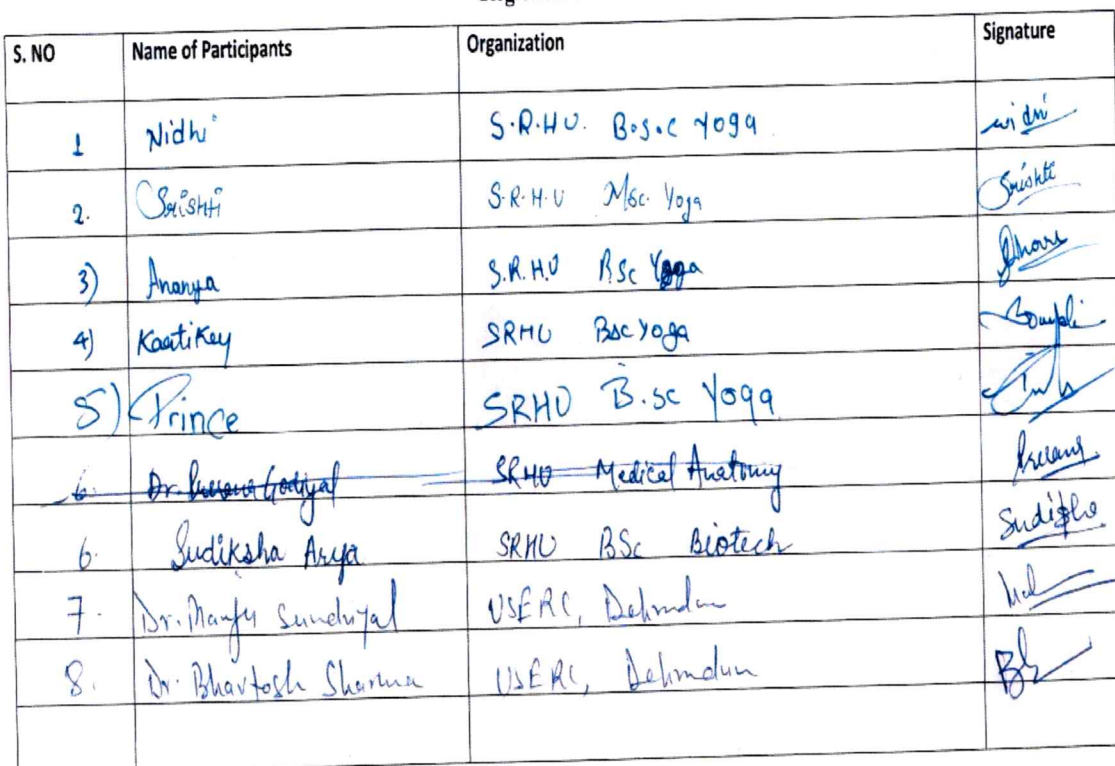 S. NO Name of Participants Organization Signature
1 Nidhi S.R.H.U. B.S.C Yoga Nidhi
2. Srishti S.R.H.U Msc. Yoga Srishti
3) Ananya S.R.H.U BSc Yoga
4) Kaatikey SRHU Bsc Yoga
5) Prince SRHU B.sc Yoga
6. Dr. Godiyal SRHU Medical Anatomy
6. Sudiksha Arya SRHU BSc Biotech
7. Dr. Manju Sundriyal USERC, Dehradun
8. Dr. Bhavtosh Sharma USERC, Dehradun